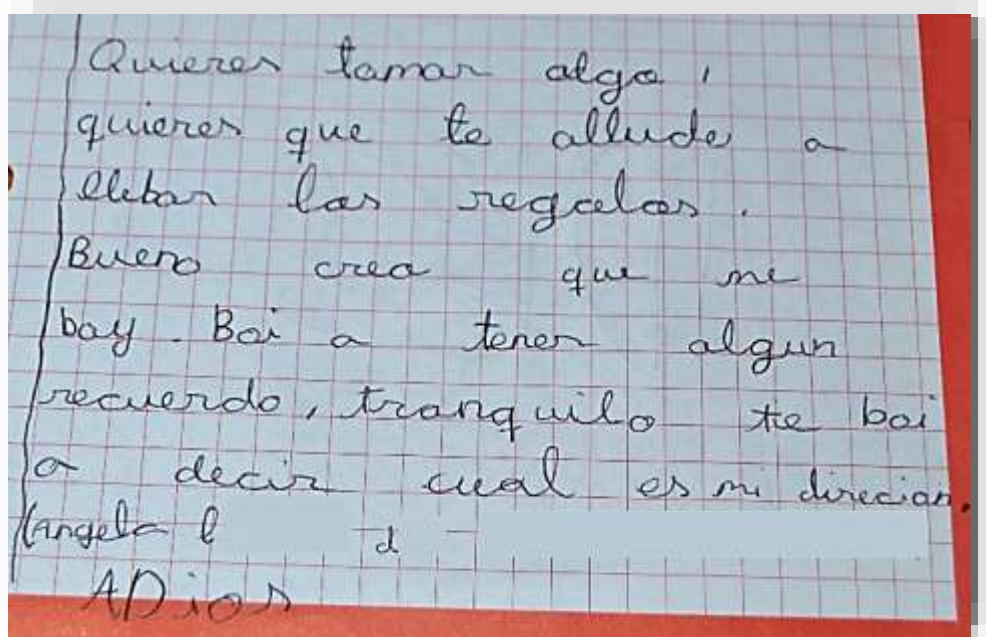 Quieres tomar algo,
quieres que te allude a
llebar los regalos.
Bueno creo que me
boy. Boi a tener algun
recuerdo, tranquilo te boi
a decir cual es mi direcion.
(angela l d
ADios